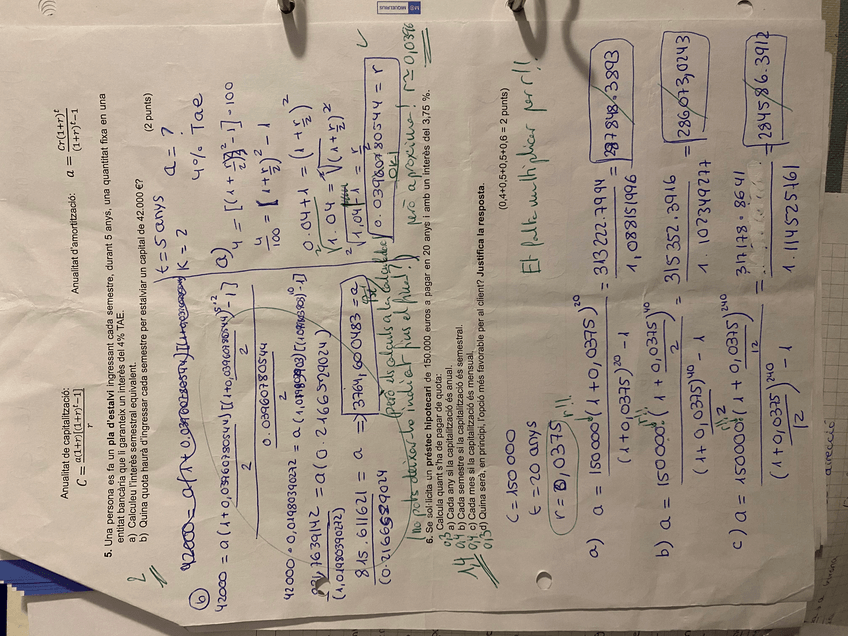 Anualitat de capitalització:
C = a(1+r)[(1+r)^t − 1] / r
Anualitat d'amortització:
a = Cr(1+r)^t / (1+r)^t − 1
5. Una persona es fa un pla d'estalvi ingressant cada semestre, durant 5 anys, una quantitat fixa en una
entitat bancària que li garanteix un interès del 4% TAE.
a) Calculeu l'interès semestral equivalent.
b) Quina quota haurà d'ingressar cada semestre per estalviar un capital de 42.000 €?
(2 punts)
2
t = 5 anys
a = ?
K = 2
4% Tae
a)
4 = [(1 + r/2)^2 − 1] · 100
4/100 = (1 + r/2)^2 − 1
0.04 + 1 = (1 + r/2)^2
√1.04 = √(1 + r/2)^2
√1,04 − 1 = r/2
0.0396080544 = r
Ok!
però aproxima! r ≈ 0,0396
b)
42000 = a(1 + 0,0396780544/2)[(1 + 0,0396780544/2)^5·2 − 1]
0.0396080544 / 2
42000 · 0,01980390272 = a
= a(0.2166529024)
(1,01980390272)
815.611621 / (0.2166529024) = a => 3764,600483 = a
No pots deixar-ho indicat fins el final?
6. Se sol·licita un préstec hipotecari de 150.000 euros a pagar en 20 anys i amb un interès del 3,75 %.
Calcula quant s'ha de pagar de quota:
a) Cada any si la capitalització és anual.
b) Cada semestre si la capitalització és semestral.
c) Cada mes si la capitalització és mensual.
d) Quina serà, en principi, l'opció més favorable per al client? Justifica la resposta.
(0,4+0,5+0,5+0,6 = 2 punts)
1,4
0,3
0,4
0,4
0,3
C = 150000
t = 20 anys
r = 0,0375
Et falta multiplicar per r!!
a) a = 150000 (1 + 0,0375)^20 / (1 + 0,0375)^20 − 1 = 313222.7994 / 1,088151996 = 287848.3893
r!!
b) a = 150000 · (1 + 0,0375/2)^40 / (1 + 0,0375/2)^40 − 1 = 315352.3916 / 1.102349277 = 286073,0243
r!!
c) a = 150000 (1 + 0,0375/12)^240 / (1 + 0,0375/12)^240 − 1 = 317178.8641 / 1.114525761 = 284586.3912
MIQUELRIUS